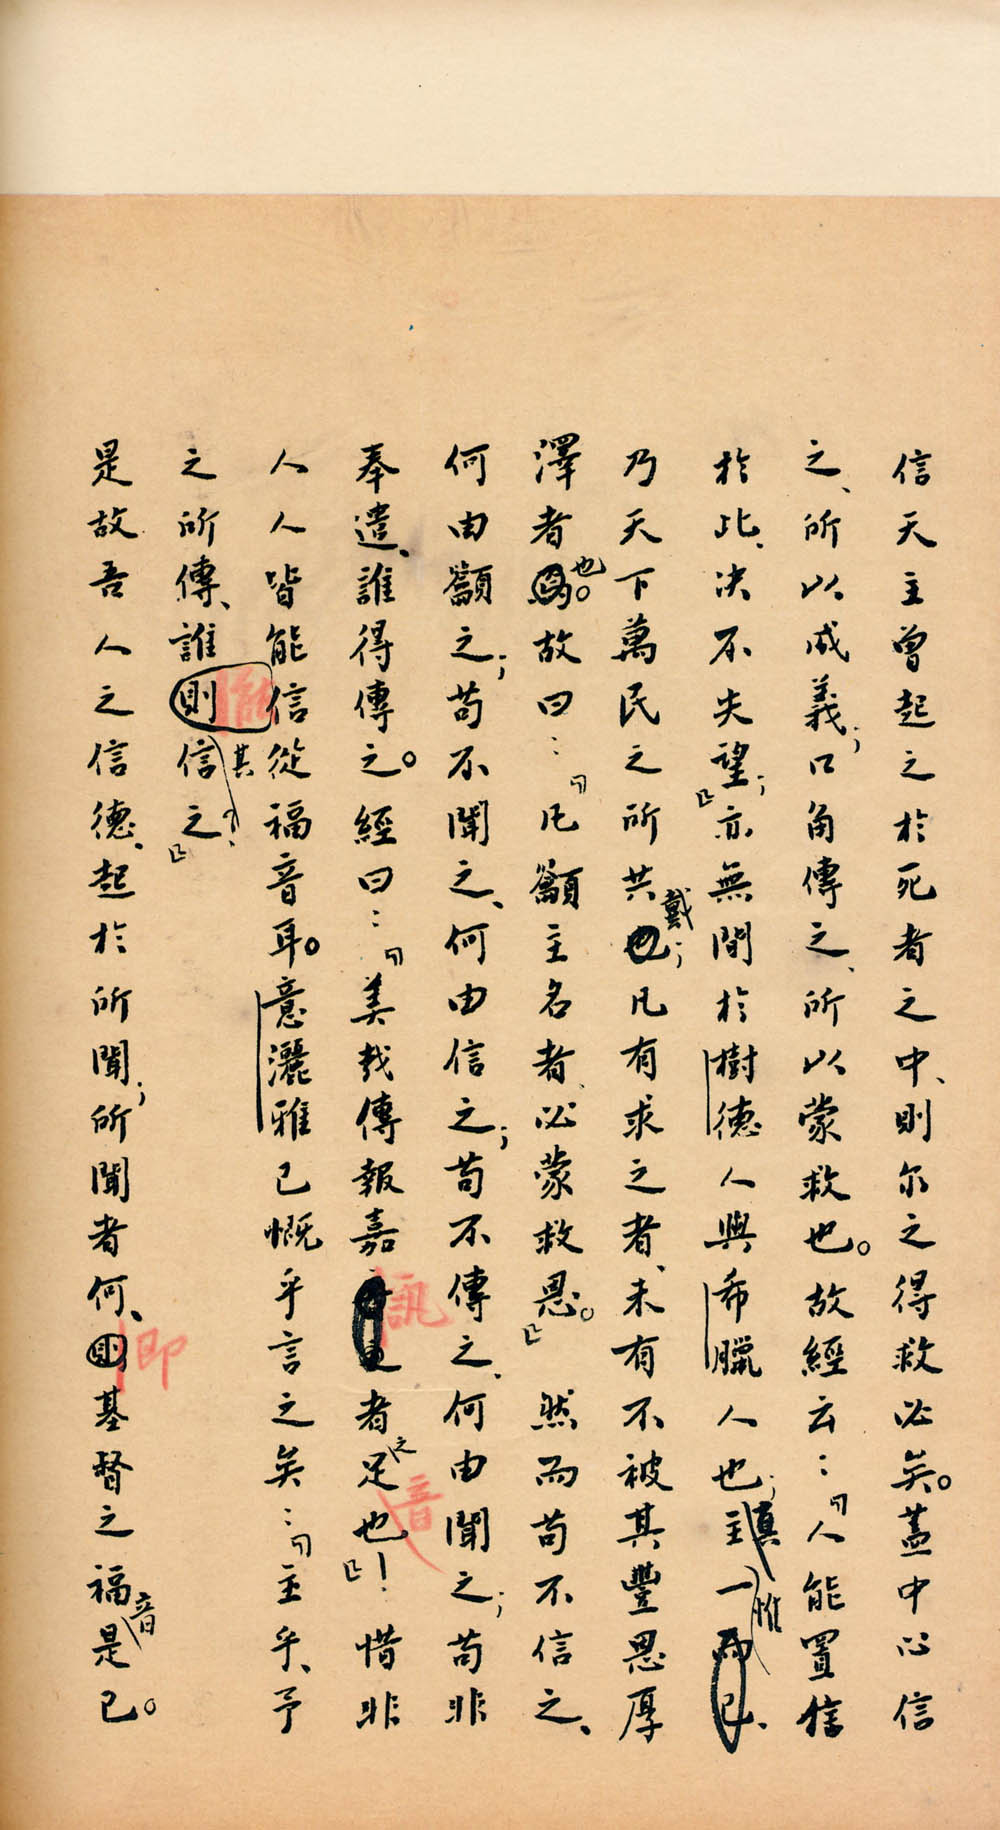 信天主曾起之於死者之中、則尔之得救必矣。蓋中心信
之、所以成義；口角傳之、所以蒙救也。故經云：「人能置信
於此、决不失望；」亦無間於樹德人與希臘人也；真主惟一而已、
乃天下萬民之所共戴也；凡有求之者、未有不被其豐恩厚
澤者也。故曰：「凡籲主名者、必蒙救恩。」然而苟不信之、
何由籲之；苟不聞之、何由信之；苟不傳之、何由聞之；苟非
奉遣、誰得傳之。經曰：「美哉傳報嘉訊者之足音也！」惜非
人人皆能信從福音耳。意灑雅已慨乎言之矣：「主乎、予
之所傳、誰則能其信之？」
是故吾人之信德、起於所聞；所聞者何、則即基督之福音是已。